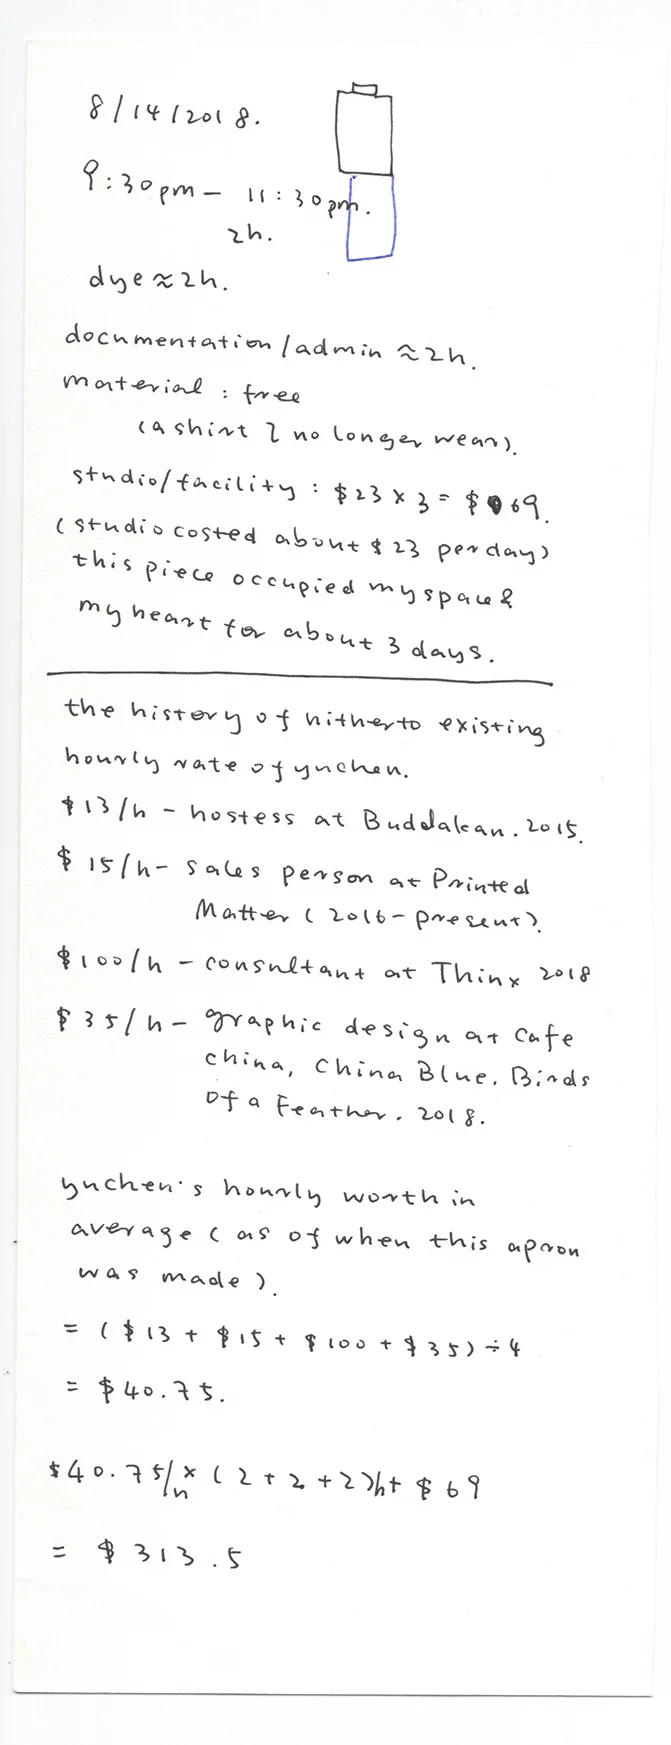 8/14/2018.
9:30pm – 11:30pm.
2h.
dye ≈ 2h.
documentation/admin ≈ 2h.
material : free
(a shirt I no longer wear).
studio/facility : $23 × 3 = $69.
(studio costed about $23 per day)
this piece occupied my space &
my heart for about 3 days.
the history of hitherto existing
hourly rate of yuchen.
$13/h – hostess at Buddakan. 2015.
$15/h – sales person at Printed
Matter (2016 – present).
$100/h – consultant at Thinx 2018
$35/h – graphic design at Cafe
china, China Blue. Birds
of a Feather. 2018.
yuchen's hourly worth in
average (as of when this apron
was made).
= ($13 + $15 + $100 + $35) ÷ 4
= $40.75.
$40.75/h × (2 + 2 + 2)h + $69
= $313.5